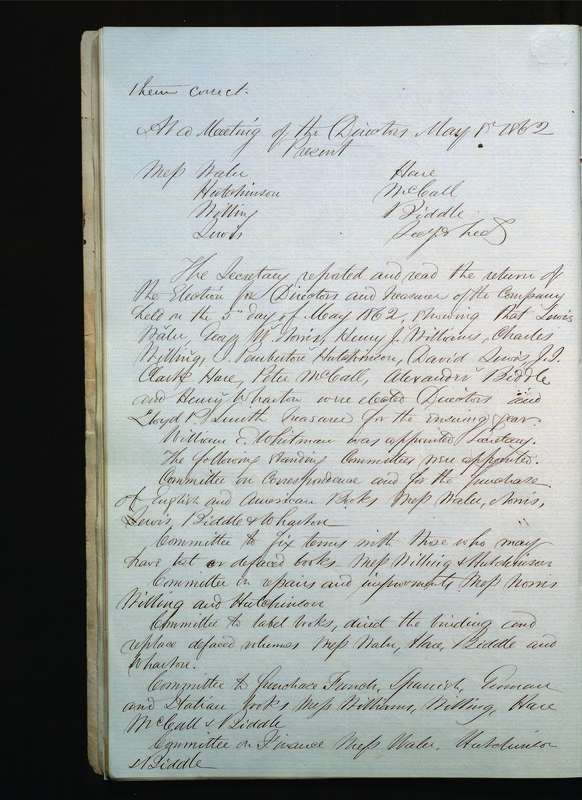 them correct.
At a Meeting of the Directors May 8 1862
Present
Mess Waln Hare
Hutchinson McCall
Willing Biddle
Lewis Secy & Treas
The Secretary reported and read the return of
the Election for Directors and Treasurer of the Company
held on the 5th day of May 1862, showing that Lewis
Waln, Geo W Norris, Henry J. Williams, Charles
Willing, I. Pemberton Hutchinson, David Lewis, J. I.
Clark Hare, Peter McCall, Alexander Biddle
and Henry Wharton were elected Directors and
Lloyd P. Smith Treasurer for the ensuing year.
William E. Whitman was appointed Secretary.
The following standing Committees were appointed.
Committee on Correspondence and for the purchase
of English and American Books Mess Waln, Norris,
Lewis, Biddle & Wharton
Committee to fix terms with those who may
have lost or defaced books Mess Willing & Hutchinson
Committee on repairs and improvements Mess Norris
Willing and Hutchinson
Committee to label books, direct the binding and
replace defaced volumes Mess Waln, Hare, Biddle and
Wharton.
Committee to purchase French, Spanish, German
and Italian books Mess Williams, Willing, Hare
McCall & Biddle
Committee on Finance Mess Waln, Hutchinson
& Biddle